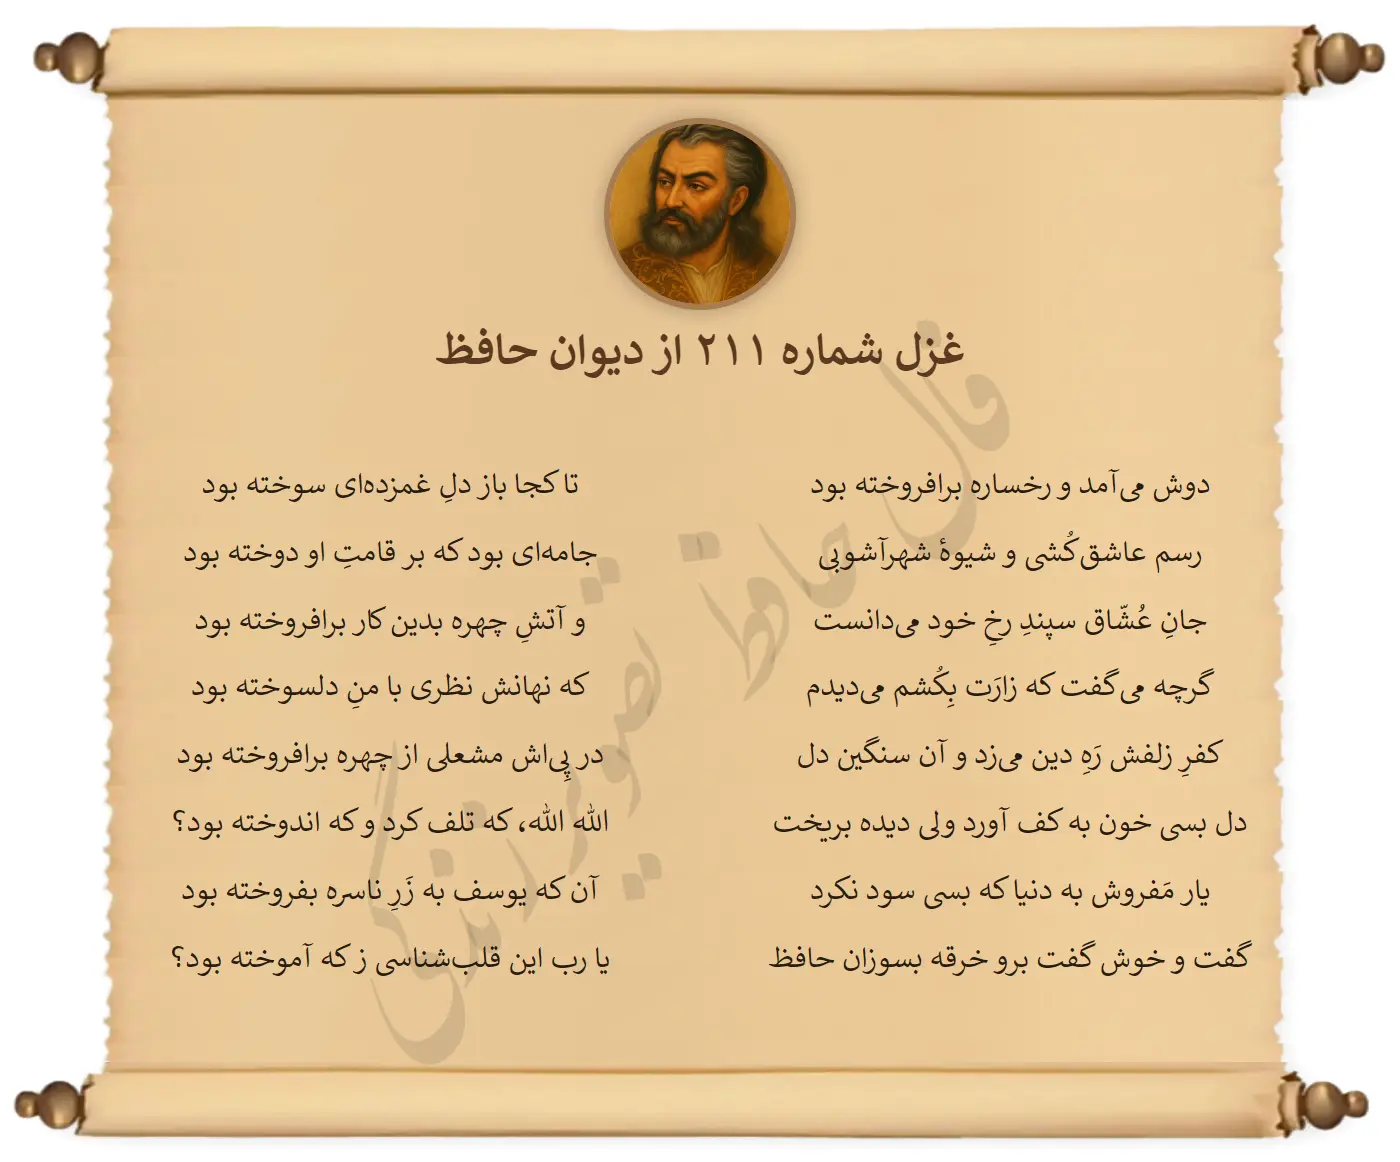 غزل شماره ۲۱۱ از دیوان حافظ
دوش می‌آمد و رخساره برافروخته بود
تا کجا باز دلِ غمزده‌ای سوخته بود
رسم عاشق‌کُشی و شیوهٔ شهرآشوبی
جامه‌ای بود که بر قامتِ او دوخته بود
جانِ عُشّاق سپندِ رخِ خود می‌دانست
و آتشِ چهره بدین کار برافروخته بود
گرچه می‌گفت که زارَت بِکُشم می‌دیدم
که نهانش نظری با منِ دلسوخته بود
کفرِ زلفش رَهِ دین می‌زد و آن سنگین دل
در پِی‌اش مشعلی از چهره برافروخته بود
دل بسی خون به کف آورد ولی دیده بریخت
الله الله، که تلف کرد و که اندوخته بود؟
یار مَفروش به دنیا که بسی سود نکرد
آن که یوسف به زَرِ ناسره بفروخته بود
گفت و خوش گفت برو خرقه بسوزان حافظ
یا رب این قلب‌شناسی ز که آموخته بود؟
فال حافظ تصویر زندگی